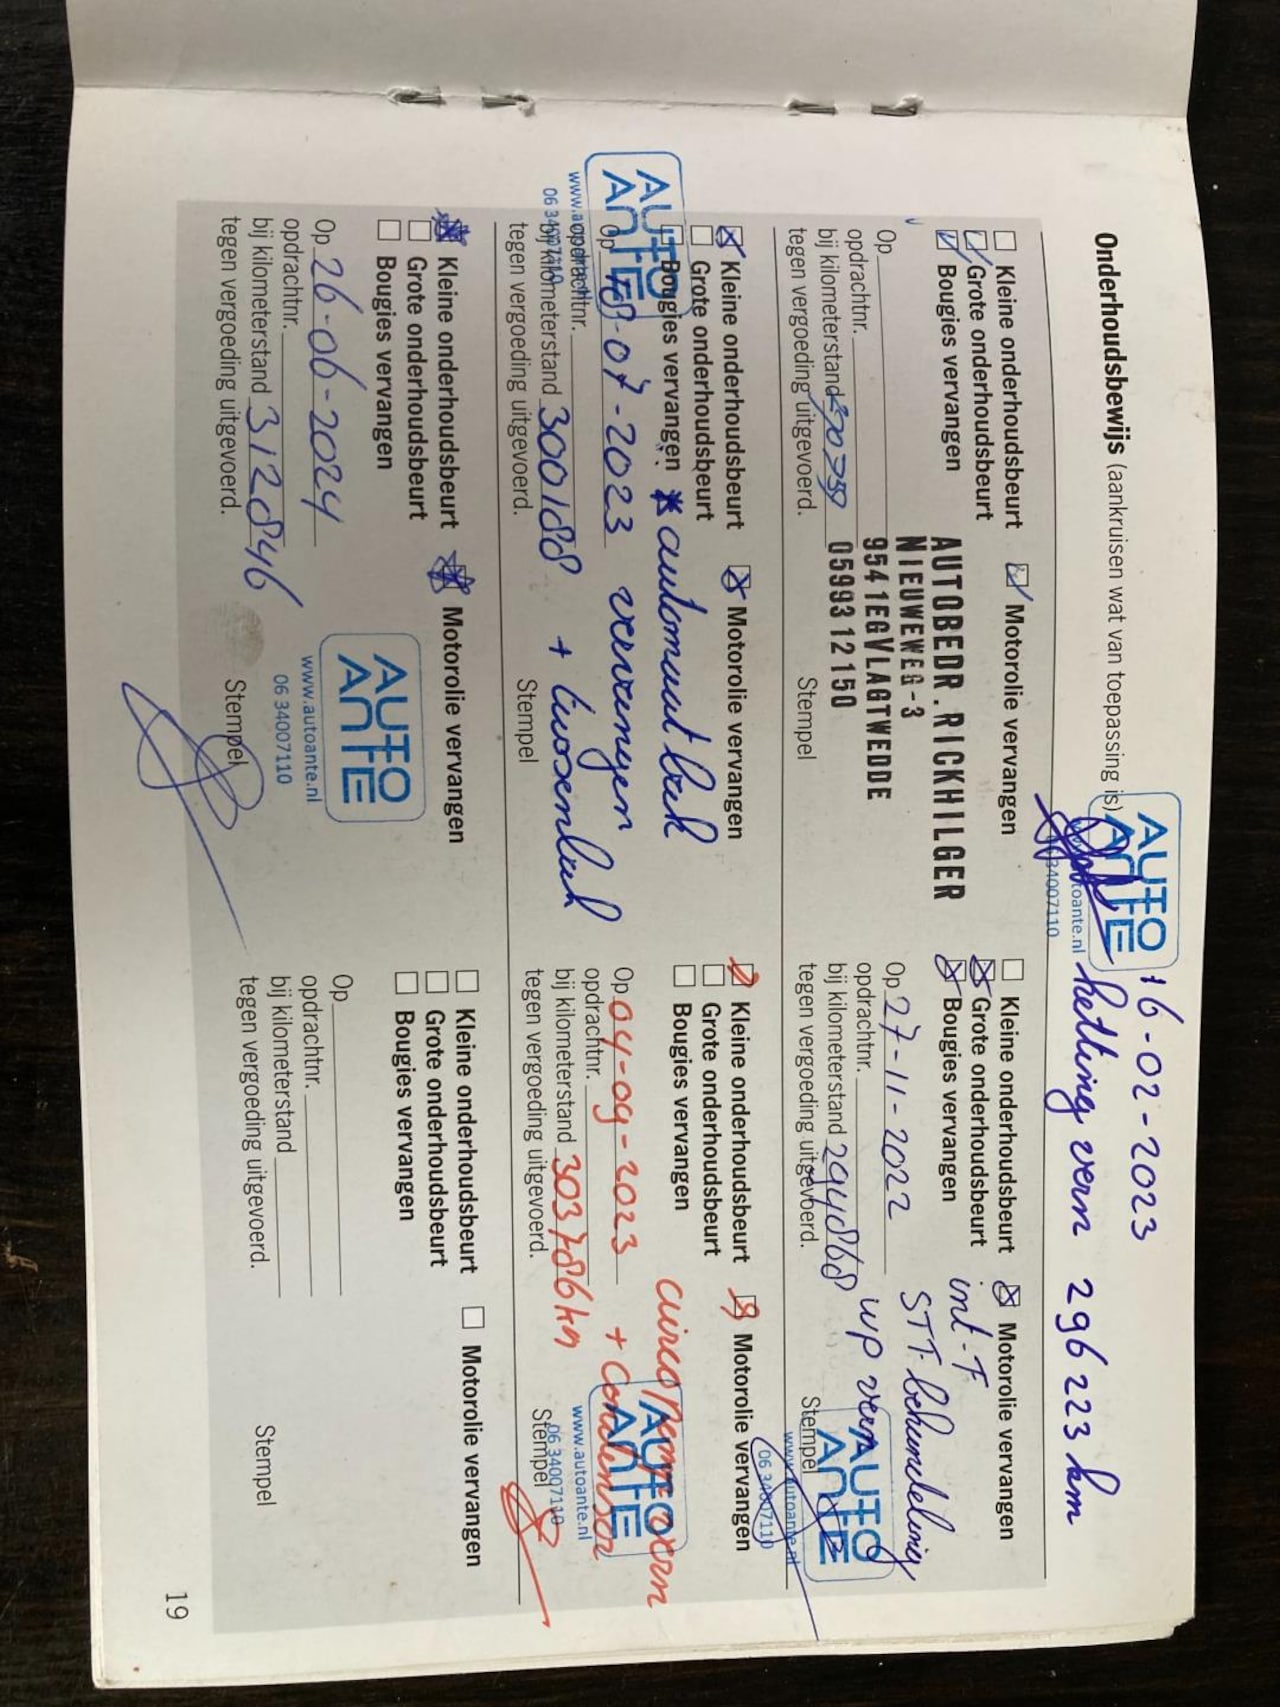 Onderhoudsbewijs (aankruisen wat van toepassing is)
AUTO
ANTE
www.autoante.nl
06 34007110
16-02-2023
ketting verv 296 223 km
Kleine onderhoudsbeurt
Motorolie vervangen
Grote onderhoudsbeurt
Bougies vervangen
Op
opdrachtnr.
bij kilometerstand
tegen vergoeding uitgevoerd.
AUTOBEDR.RICKHILGER
NIEUWEWEG-3
9541EGVLAGTWEDDE
0599312150
Stempel
Kleine onderhoudsbeurt
Motorolie vervangen
Grote onderhoudsbeurt
int-F
Bougies vervangen
STT behandeling
Op 27-11-2022
wp verv
opdrachtnr.
bij kilometerstand 294868
tegen vergoeding uitgevoerd.
Stempel
AUTO
ANTE
www.autoante.nl
06 34007110
Kleine onderhoudsbeurt
Motorolie vervangen
Grote onderhoudsbeurt
Bougies vervangen * automaat bak
Op 18-07-2023 vervangen
opdrachtnr.
bij kilometerstand 300188 + tussenbak
tegen vergoeding uitgevoerd.
Stempel
AUTO
ANTE
www.autoante.nl
06 34007110
Kleine onderhoudsbeurt
Motorolie vervangen
Grote onderhoudsbeurt
Bougies vervangen
Op 04-09-2023
+ Condensor
opdrachtnr.
bij kilometerstand 303786 km
tegen vergoeding uitgevoerd.
Stempel
AUTO
ANTE
www.autoante.nl
06 34007110
Kleine onderhoudsbeurt
Motorolie vervangen
Grote onderhoudsbeurt
Bougies vervangen
Op 26-06-2024
opdrachtnr.
bij kilometerstand 312846
tegen vergoeding uitgevoerd.
Stempel
AUTO
ANTE
www.autoante.nl
06 34007110
Kleine onderhoudsbeurt
Motorolie vervangen
Grote onderhoudsbeurt
Bougies vervangen
Op
opdrachtnr.
bij kilometerstand
tegen vergoeding uitgevoerd.
Stempel
19